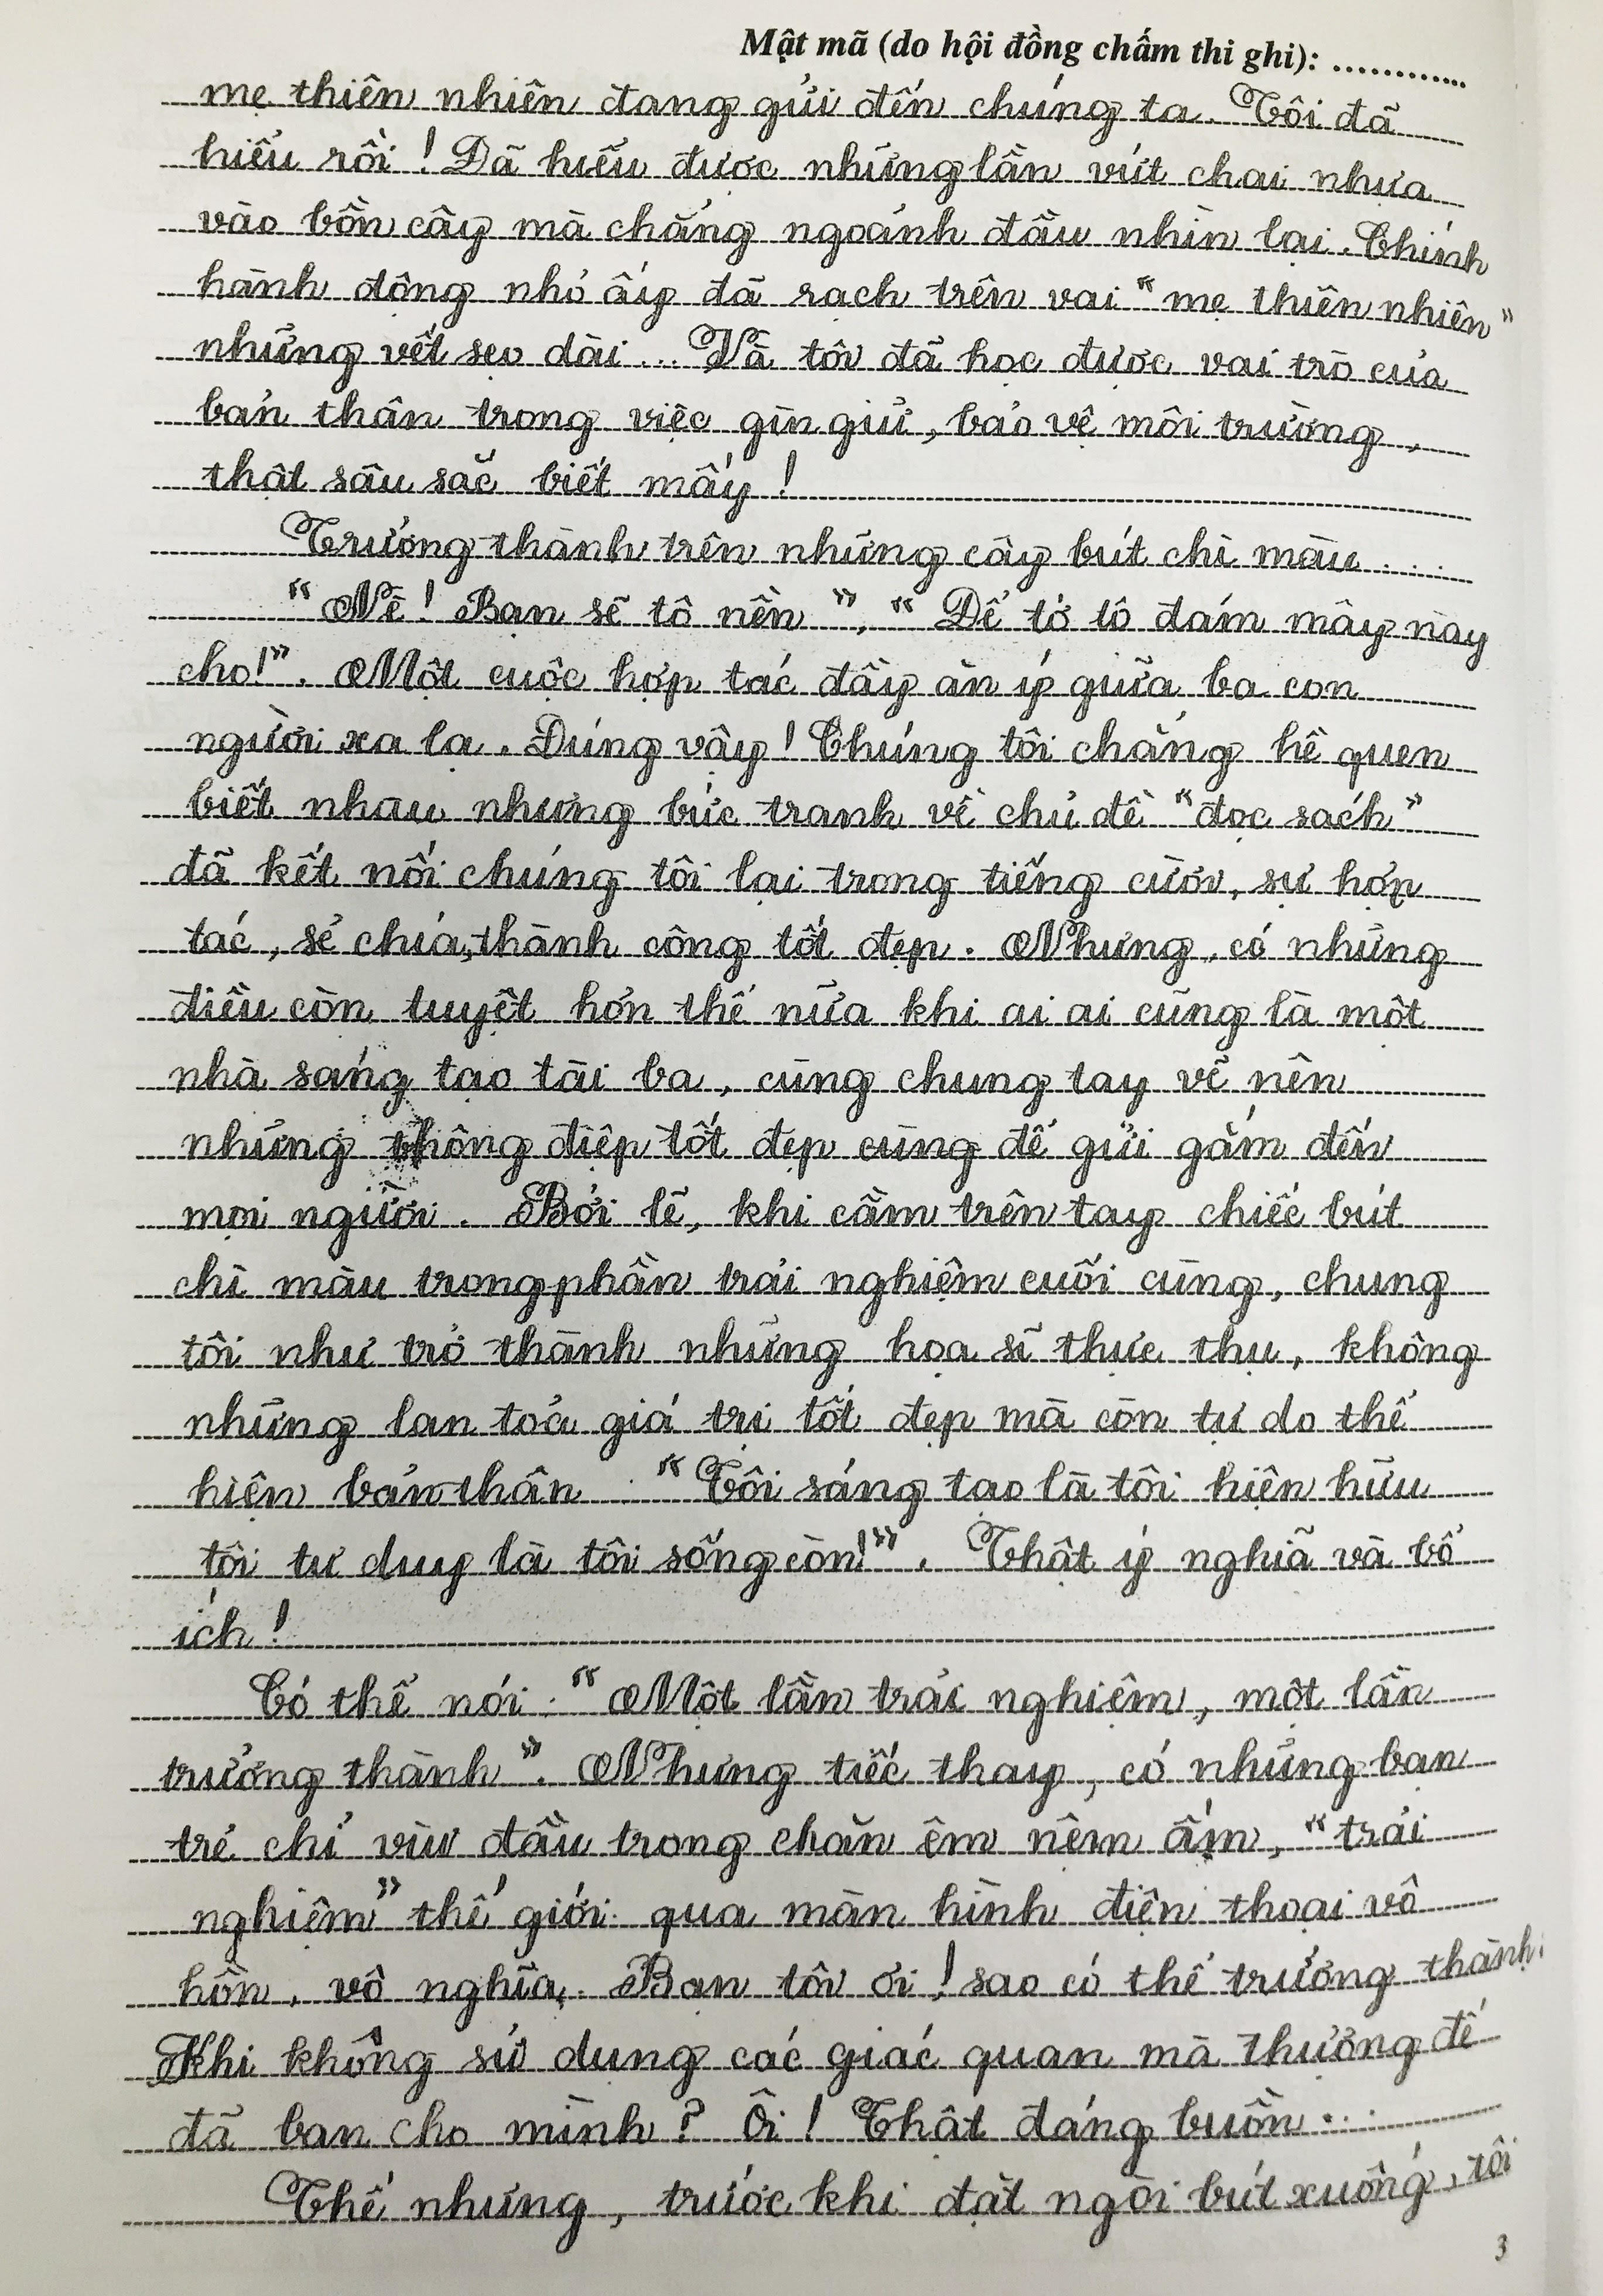 Mật mã (do hội đồng chấm thi ghi): ............
mẹ thiên nhiên đang gửi đến chúng ta. Tôi đã
hiểu rồi! Đã hiểu được những lần vứt chai nhựa
vào bồn cây mà chẳng ngoảnh đầu nhìn lại. Chính
hành động nhỏ ấy đã rạch trên vai "mẹ thiên nhiên"
những vết sẹo dài... Và tôi đã học được vai trò của
bản thân trong việc gìn giữ, bảo vệ môi trường,
thật sâu sắc biết mấy!
Trưởng thành trên những cây bút chì màu...
"Nè! Bạn sẽ tô nền", "Để tớ tô đám mây này
cho!". Một cuộc hợp tác đầy ăn ý giữa ba con
người xa lạ. Đúng vậy! Chúng tôi chẳng hề quen
biết nhau nhưng bức tranh về chủ đề "đọc sách"
đã kết nối chúng tôi lại trong tiếng cười, sự hợp
tác, sẻ chia, thành công tốt đẹp. Nhưng, có những
điều còn tuyệt hơn thế nữa khi ai ai cũng là một
nhà sáng tạo tài ba, cùng chung tay vẽ nên
những thông điệp tốt đẹp cùng để gửi gắm đến
mọi người. Bởi lẽ, khi cầm trên tay chiếc bút
chì màu trong phần trải nghiệm cuối cùng, chung
tôi như trở thành những họa sĩ thực thụ, không
những lan toả giá trị tốt đẹp mà còn tự do thể
hiện bản thân. "Tôi sáng tạo là tôi hiện hữu
tôi tư duy là tôi sống còn!". Thật ý nghĩa và bổ
ích!
Có thể nói: "Một lần trải nghiệm, một lần
trưởng thành". Nhưng tiếc thay, có những bạn
trẻ chỉ vùi đầu trong chăn êm nệm ấm, "trải
nghiệm" thế giới qua màn hình điện thoại vô
hồn, vô nghĩa. Bạn tôi ơi! sao có thể trưởng thành
Khi không sử dụng các giác quan mà thượng đế
đã ban cho mình? Ôi! Thật đáng buồn...
Thế nhưng, trước khi đặt ngòi bút xuống, tôi
3